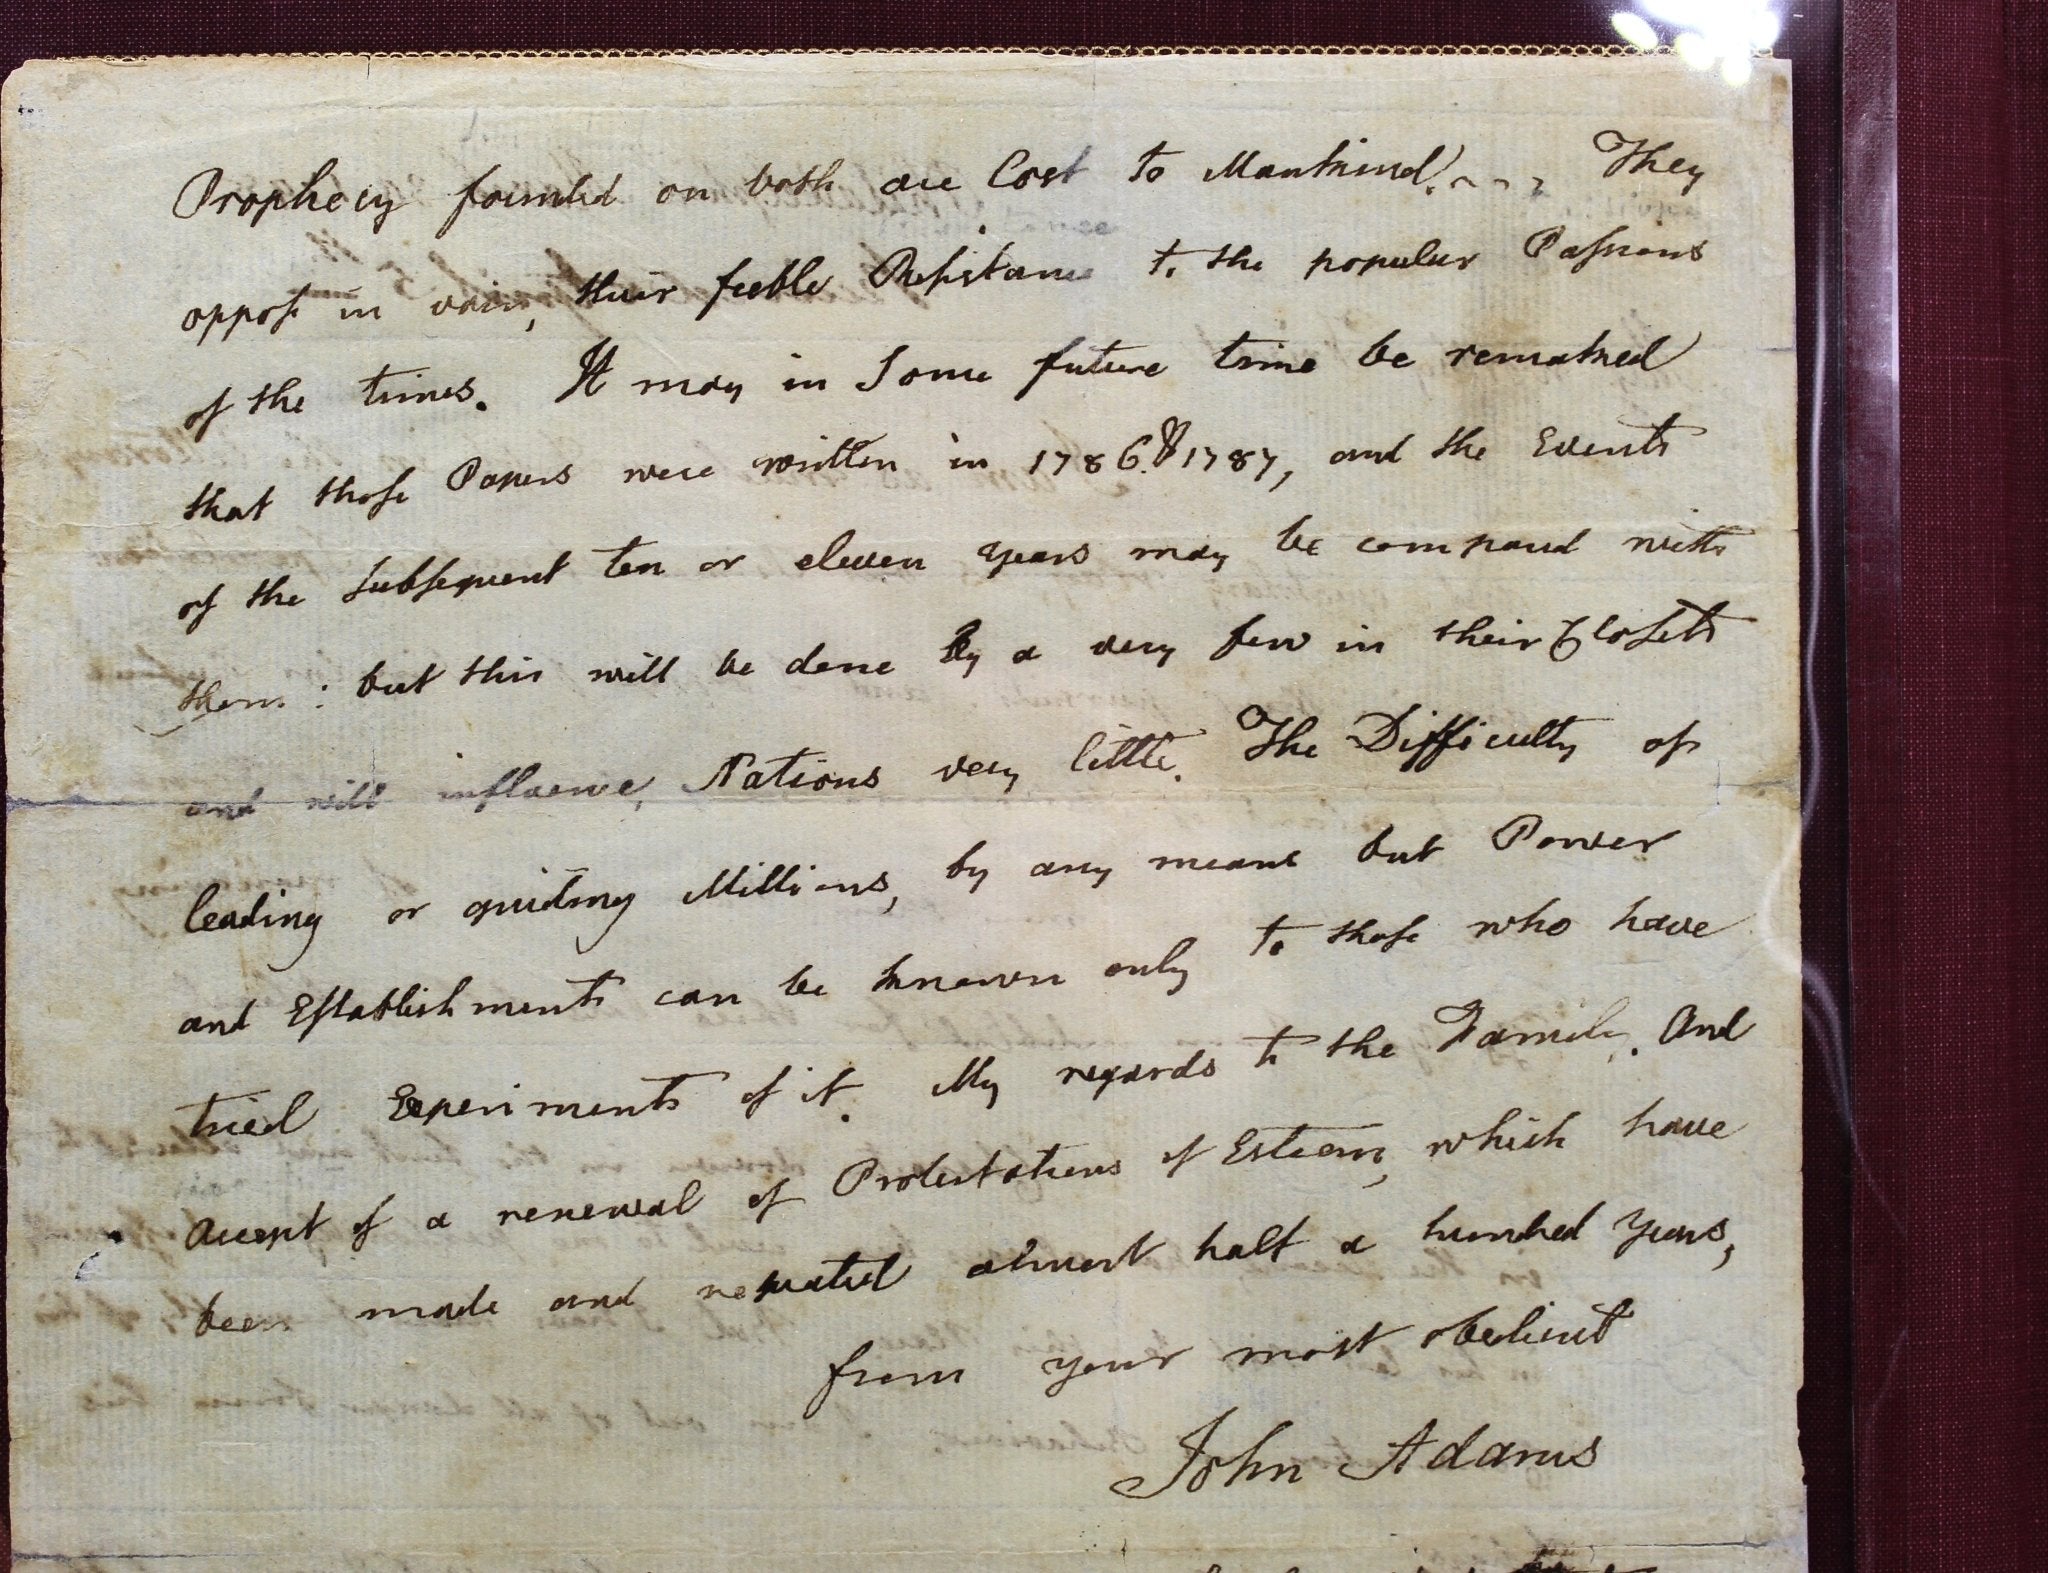 Prophecy founded on both are Lost to Mankind. They
oppose in vain, their feeble Resistance to the popular Passions
of the times. It may in Some future time be remarked
that those Papers were written in 1786. & 1787, and the Events
of the subsequent ten or eleven years may be compared with
them: but this will be done by a very few in their Closets
and will influence, Nations very little. The Difficulty of
leading or guiding Millions, by any means but Power
and Establishments can be known only to those who have
tried Experiments of it. My regards to the Family. And
Accept of a renewal of Protestations of Esteem, which have
been made and repeated almost half a hundred Years,
from your most obedient
John Adams